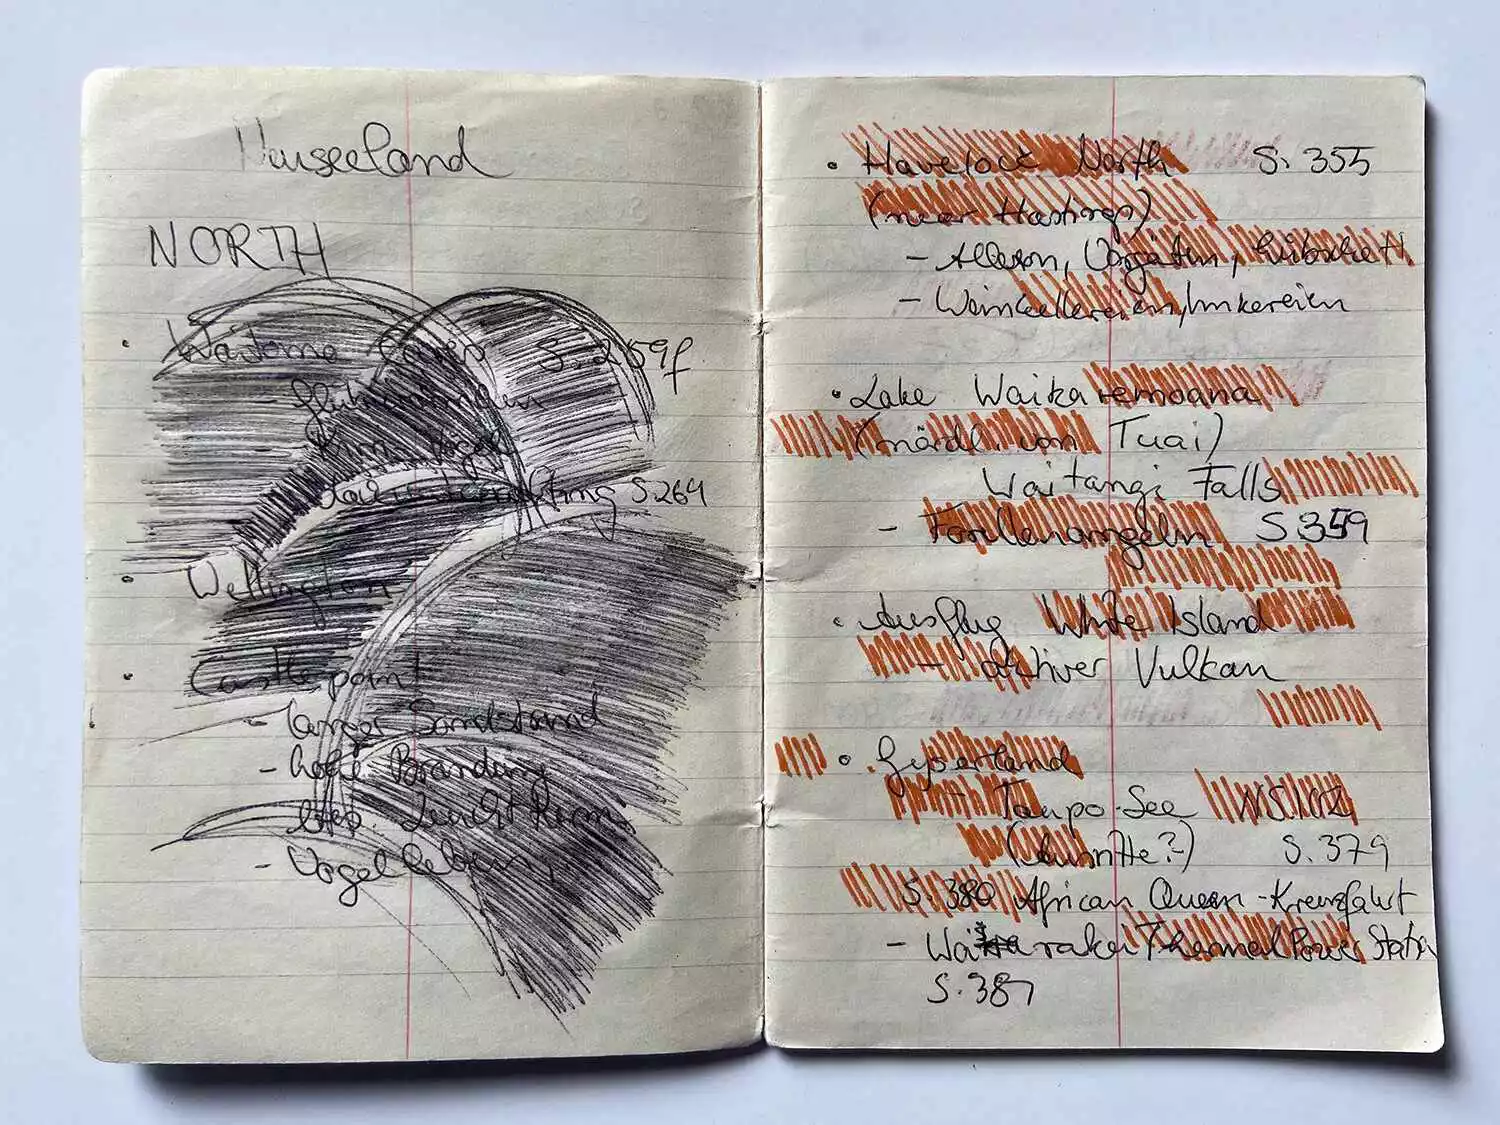 Neuseeland
NORTH
• Waitomo Caves S. 259f
- Glühwürmchen
Kiwi Vögel
Rafting S. 264
• Wellington
• Castlepoint
- langer Sandstrand
- hohe Brandung
Leuchtturm
- Vogelleben
• Havelock North S. 355
(near Hastings)
- Alleen, Vorgärten,
- Weinkellereien/Imkereien
• Lake Waikaremoana
(nördl. von Tuai)
Waitangi Falls
- Forellenangeln S 359
• Ausflug White Island
- aktiver Vulkan
• Geyserland
- Taupo-See
(Ausritte?) S. 379
S. 380 African Queen-Kreuzfahrt
- Wairakei Thermal Power Station
S. 381